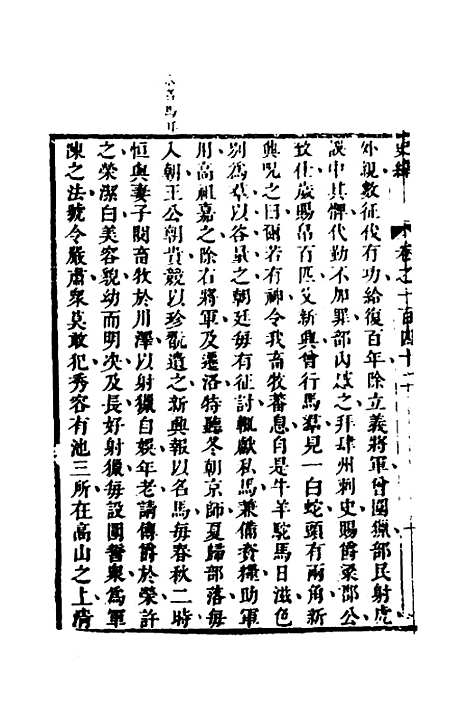 史緯 卷之十百四十
外親數征伐有功給復百年除立義將軍曾圍獵部民射虎
誤中其髀代勤不加罪部內感之拜肆州刺史賜爵梁郡公
致仕歲賜帛百匹父新興曾行馬羣見一白蛇頭有兩角新
興咒之曰爾若有神令我畜牧蕃息自是牛羊駝馬日滋色
別為羣以谷量之朝廷每有征討輒獻私馬兼備資糧助軍
用高祖嘉之除右將軍及遷洛特聽冬朝京師夏歸部落每
入朝王公朝貴競以珍翫遺之新興報以名馬每春秋二時
恒與妻子閱畜牧於川澤以射獵自娛年老請傳爵於榮許
之榮潔白美容貌幼而明決及長好射獵每設圍誓衆為軍
陳之法號令嚴肅衆莫敢犯秀容有池三所在高山之上清